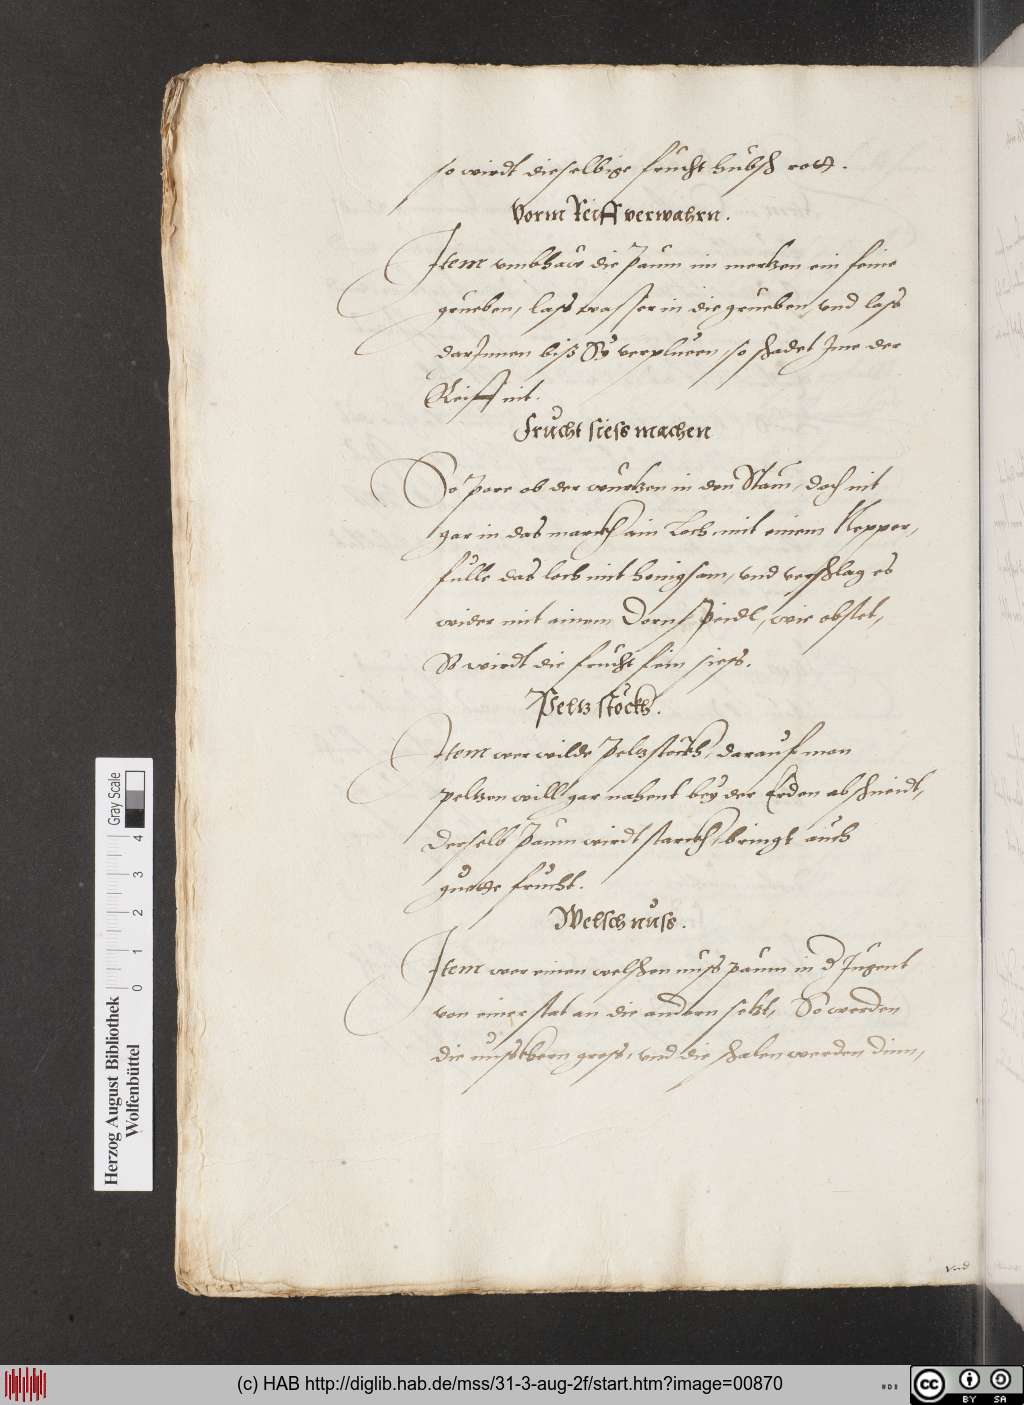 so wirdt dieselbige frucht hübsch rott.
Vorm Reiff verwahrn.
Item vmbhaw die Paum im mertzen ein feine
grueben, lass wasser in die grueben, vnd lass
darInnen biss Sy verplueen, so schadet Ime der
Reiff nit.
Frücht siess machen
So pore ob der wurtzen in den Stam, doch nit
gar in das marckh ain Loch mit einem Nepper,
fulle das loch mit honigsam, vnd verschlag es
wider mit ainem Dornspeidl, wie obstet,
So wirdt die frucht fein siess.
Peltz stöckh.
Item wer wilde Peltzstöckh, darauf man
peltzen will, gar nahent bey der Erden abschneidt,
Derselb Paum wirdt starckh, bringt auch
guette frucht.
Welsch nüss.
Item wer einen welschen nuss paum in d Jugent
von einer stat an die andern setzt, So werden
die nusskhern gross, vnd die schalen werden dinn,
vnd
Gray Scale
4
3
2
1
0
Herzog August Bibliothek
Wolfenbüttel
(c) HAB http://diglib.hab.de/mss/31-3-aug-2f/start.htm?image=00870
cc
BY
SA